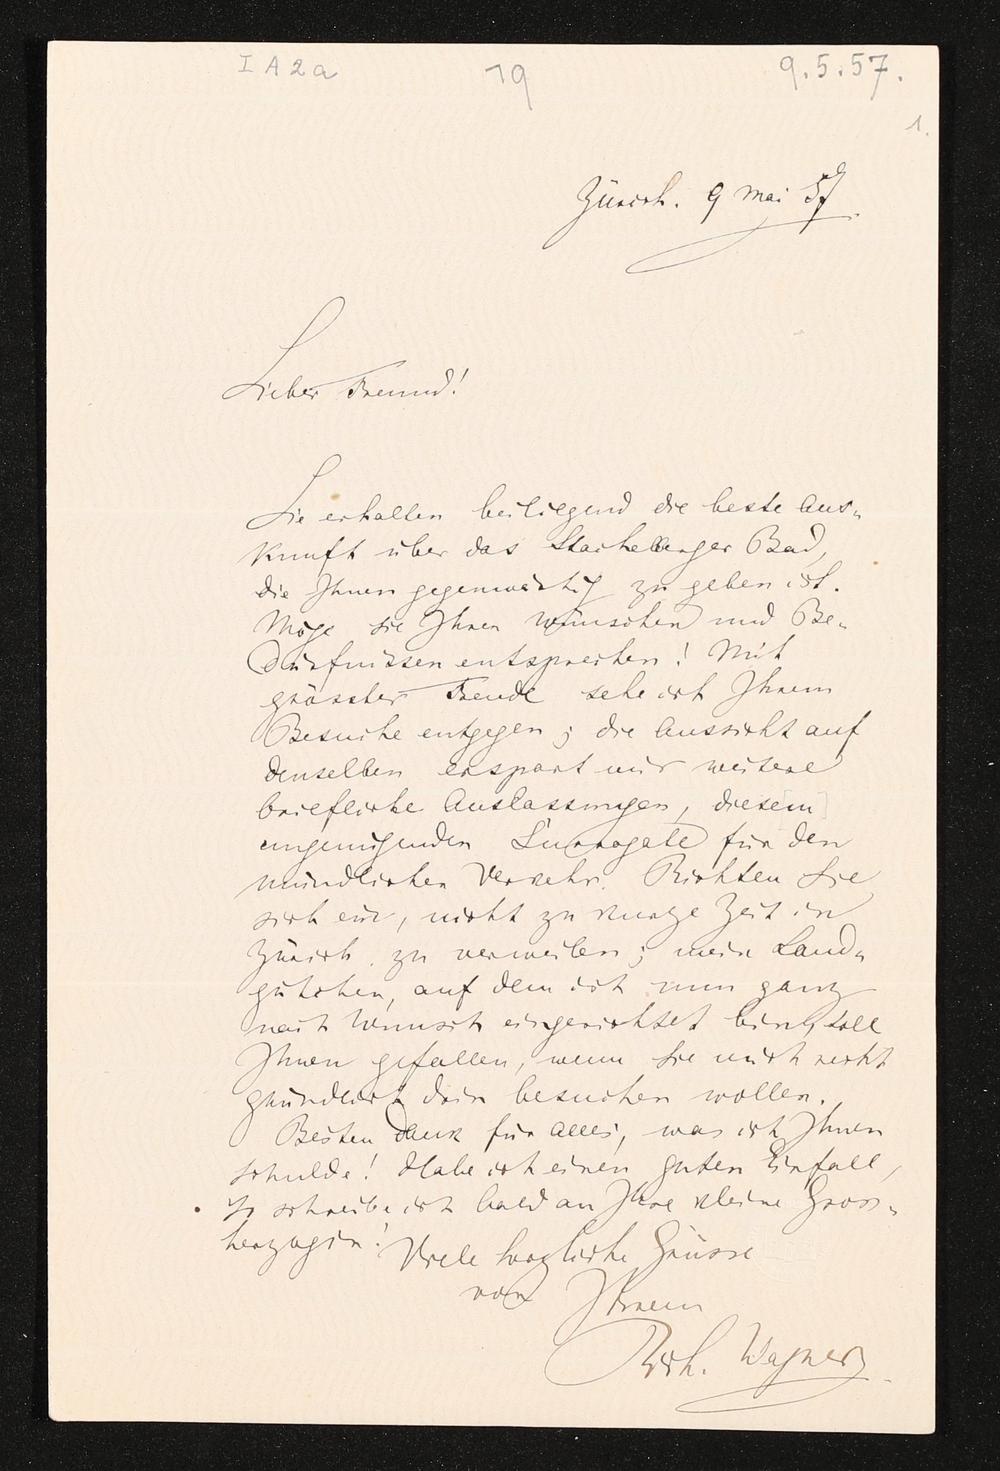 I A 2 a 19 9.5.57.
1.
Zürich. 9 Mai 57
Lieber Freund!
Sie erhalten beiliegend die beste Aus-
kunft über das Stachelberger Bad,
die Ihnen gegenwärtig zu geben ist.
Möge sie Ihren Wünschen und Be-
dürfnissen entsprechen! Mit
grösster Freude sehe ich Ihrem
Besuche entgegen; die Aussicht auf
denselben erspart mir weitere
briefliche Auslassungen, diesem
ungenügenden Surrogate für den
mündlichen Verkehr. Richten Sie
sich ein, nicht zu kurze Zeit in
Zürich zu verweilen; mein Land-
gütchen, auf dem ich nun ganz
nach Wunsch eingerichtet bin, soll
Ihnen gefallen, wenn Sie mich recht
gründlich drin besuchen wollen.
Besten Dank für alles, was ich Ihnen
schulde! Habe ich einen guten Einfall,
so schreibe ich bald an Ihre kleine Gross-
herzogin! Viele herzliche Grüsse
von Ihrem
Rich. Wagner